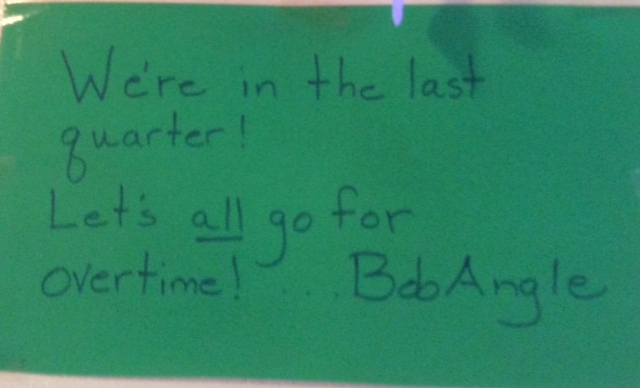 We're in the last
quarter!
Let's all go for
overtime! ... Bob Angle